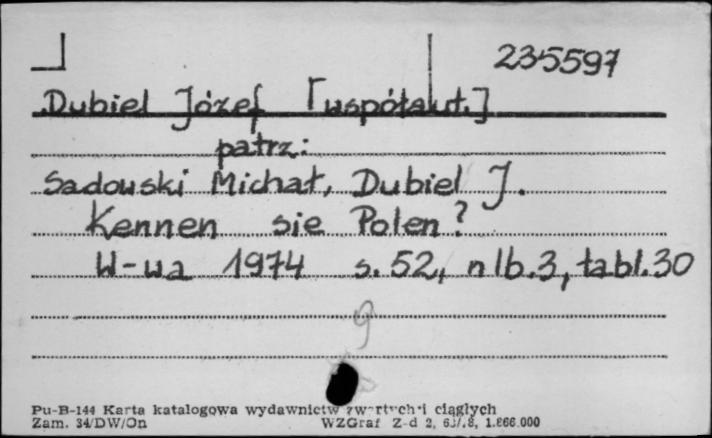 235597
Dubiel Józef [współaut.]
patrz:
Sadowski Michał, Dubiel J.
Kennen sie Polen?
W-wa 1974 s. 52, nlb. 3, tabl. 30
9
Pu-B-144 Karta katalogowa wydawnictw zwartych i ciągłych
Zam. 34/DW/On WZGraf Z-d 2, 1.866.000